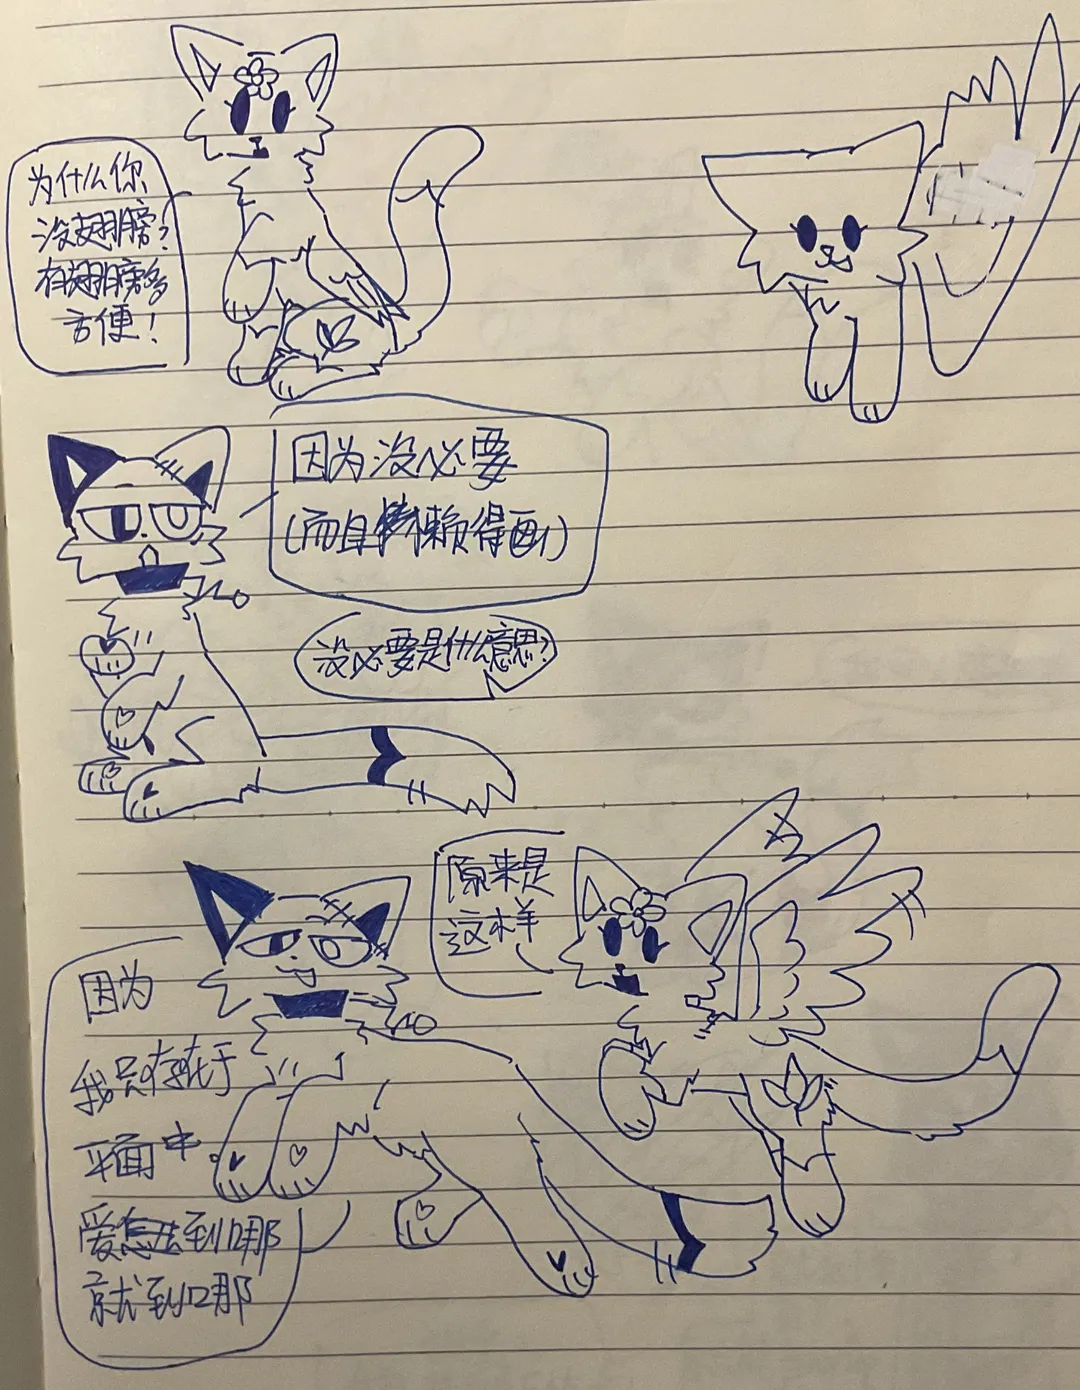 为什么你
没翅膀？
有翅膀多
方便！
因为没必要
（而且懒得画）
没必要是什么意思？
原来是
这样
因为
我只存在于
平面中
爱怎去到哪
就到哪